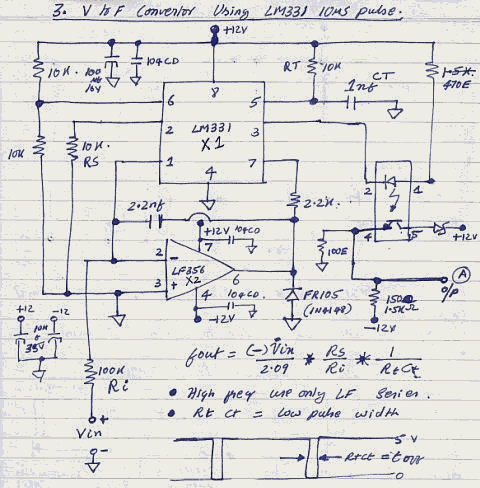 3. V to F Convertor Using LM331 10mS pulse.
+12V
10K.
104CD
RT
10K
CT
1nf
1.5K
470E
8
6
5
2
LM331
3
X1
1
7
4
10K
10K
RS
2.2nf
2.2K
2
1
4
5
+12V
+12V
104CD
7
100E
2
LF356
X2
6
3
4
104CD
-12V
FR105
(1N4148)
A
O/P
1.5KΩ
-12V
+12
-12
100K
Ri
+
Vin
-
fout = (-)Vin / 2.09 * Rs / Ri * 1 / RtCt
• High freq use only LF series.
• Rt Ct = low pulse width
5V
RtCt = t off
0